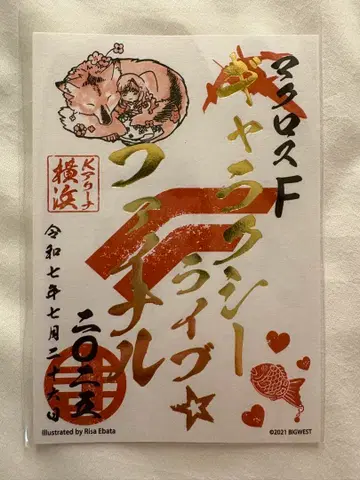 マクロスF
ギャラクシー
ライブ☆
ファイナル
二〇二五
令和七年七月二十六日
Kアリーナ
横浜
Illustrated by Risa Ebata
©2021 BIGWEST